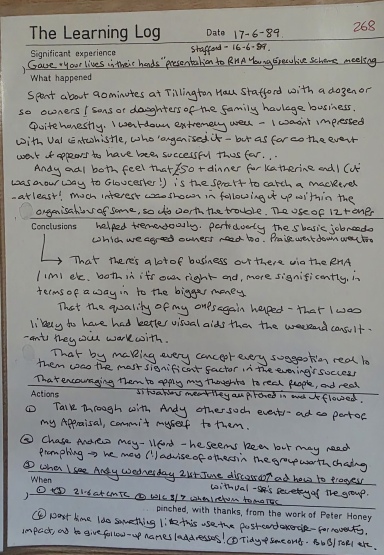 268
The Learning Log Date 17-6-89.
Stafford - 16-6-89.
Significant experience
Gave "your lives in their hands" presentation to RHA Young Executive scheme meeting
What happened
Spent about 90 minutes at Tillington Hall Stafford with a dozen or
so owners / sons or daughters of the family haulage business.
Quite honestly. I went down extremely well - I wasn't impressed
with Val Entwhistle, who 'organised it' - but as far as the event
went it appears to have been successful thus far...
Andy and I both feel that £50 + dinner for Katherine and I (it
was on our way to Gloucester!) is the spratt to catch a mackerel
- at least! Much interest was shown in following it up within the
organisations of some, so it's worth the trouble. The use of 12 + OHPs
Conclusions helped tremendously. particularly the 5 basic job needs
which we agreed owners need too. Praise went down well too
That there's a lot of business out there via the RHA
/ IMI etc. both in its own right and, more significantly, in
terms of a way in to the bigger money.
That the quality of my OHPs again helped - that I was
likely to have had better visual aids than the weekend consult-
-ants they will work with.
That by making every concept every suggestion real to
them was the most significant factor in the evening's success
That encouraging them to apply my thoughts to real people, and real
situations meant they
Actions
① Talk through with Andy other such events - and as part of
my Appraisal, commit myself to them.
② Chase Andrew Mey - Ilford - he seems keen but may need
prompting → he may (!) advise of others in the group worth chasing
③ When I see Andy Wednesday 21st June discuss and how to progress
with Val - she's secretary of the group.
When
pinched, with thanks, from the work of Peter Honey
④ Next time I do something like this use the postcard exercise - for novelty,
impact, and to give follow-up names/addresses!